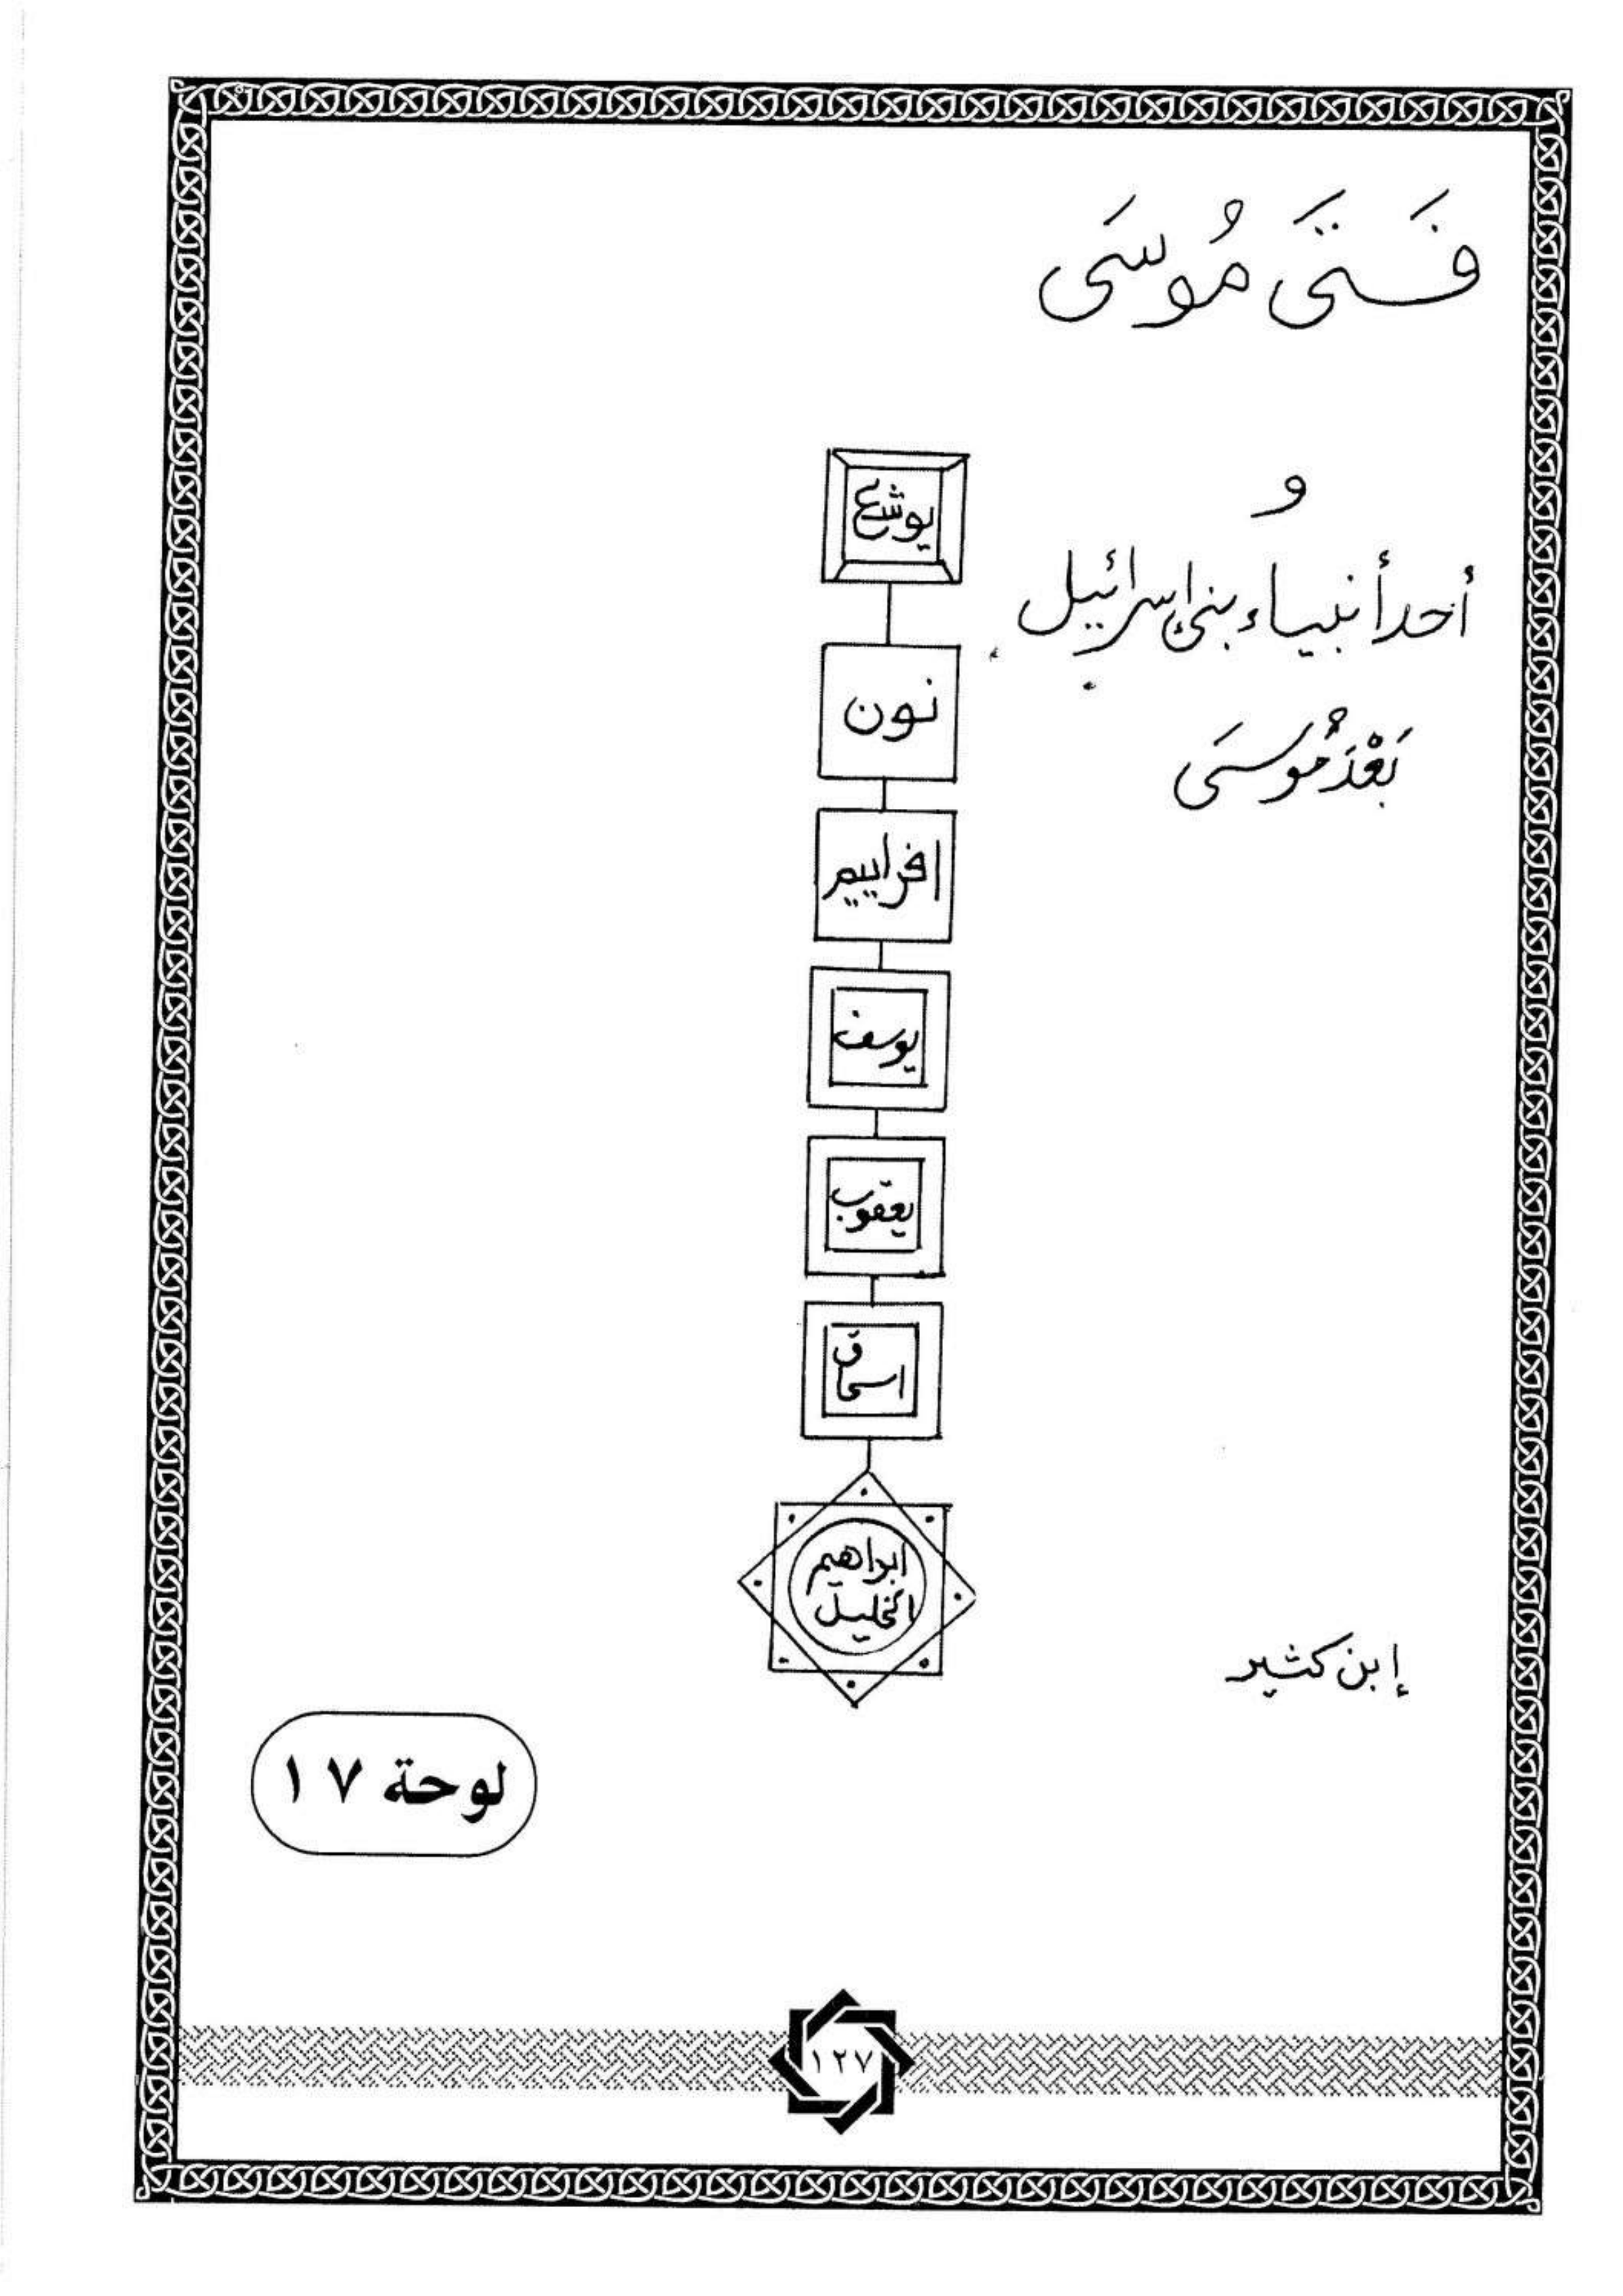 فَتَى مُوسَى
و
أحد أنبياء بني إسرائيل
بَعْدَ مُوسَى
يوشع
نون
افراييم
يوسف
يعقوب
اسحاق
ابراهيم
الخليل
إبن كثير
لوحة ١٧
١٢٧